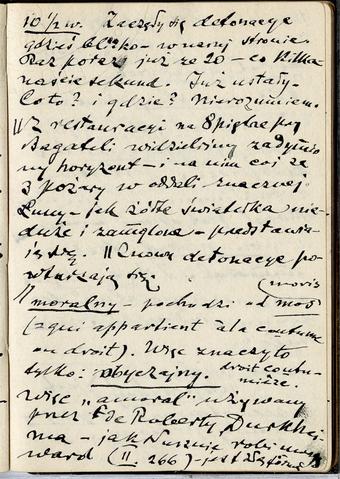 10 1/2 w. Zaczęły się detonacye
gdzieś blizko - w naszej stronie
Raz po raz już ze 20 - co kilka-
naście sekund. Już ustały.
Co to? i gdzie? Nierozumiem.
|| Z restauracyi na 8 piętrze przy
Bagateli widzieliśmy zadymio
ny horyzont - i na nim coś ze
3 pożary w oddali znacznej
Łuny - jak żółte światełka nie-
duże i zamglone - przedstawia-
ją się. || Znowu detonacye po-
wtarzają się.
(moris
|| moralny - pochodzi od mos
(= qui appartient à la coutume
ou droit). Więc znaczy to
tylko: obyczajny. droit coutu-
mière.
Więc "amoral" używany
przez E de Roberty, Durkhei-
ma - jak słusznie robi
ward (II. 266) - jest